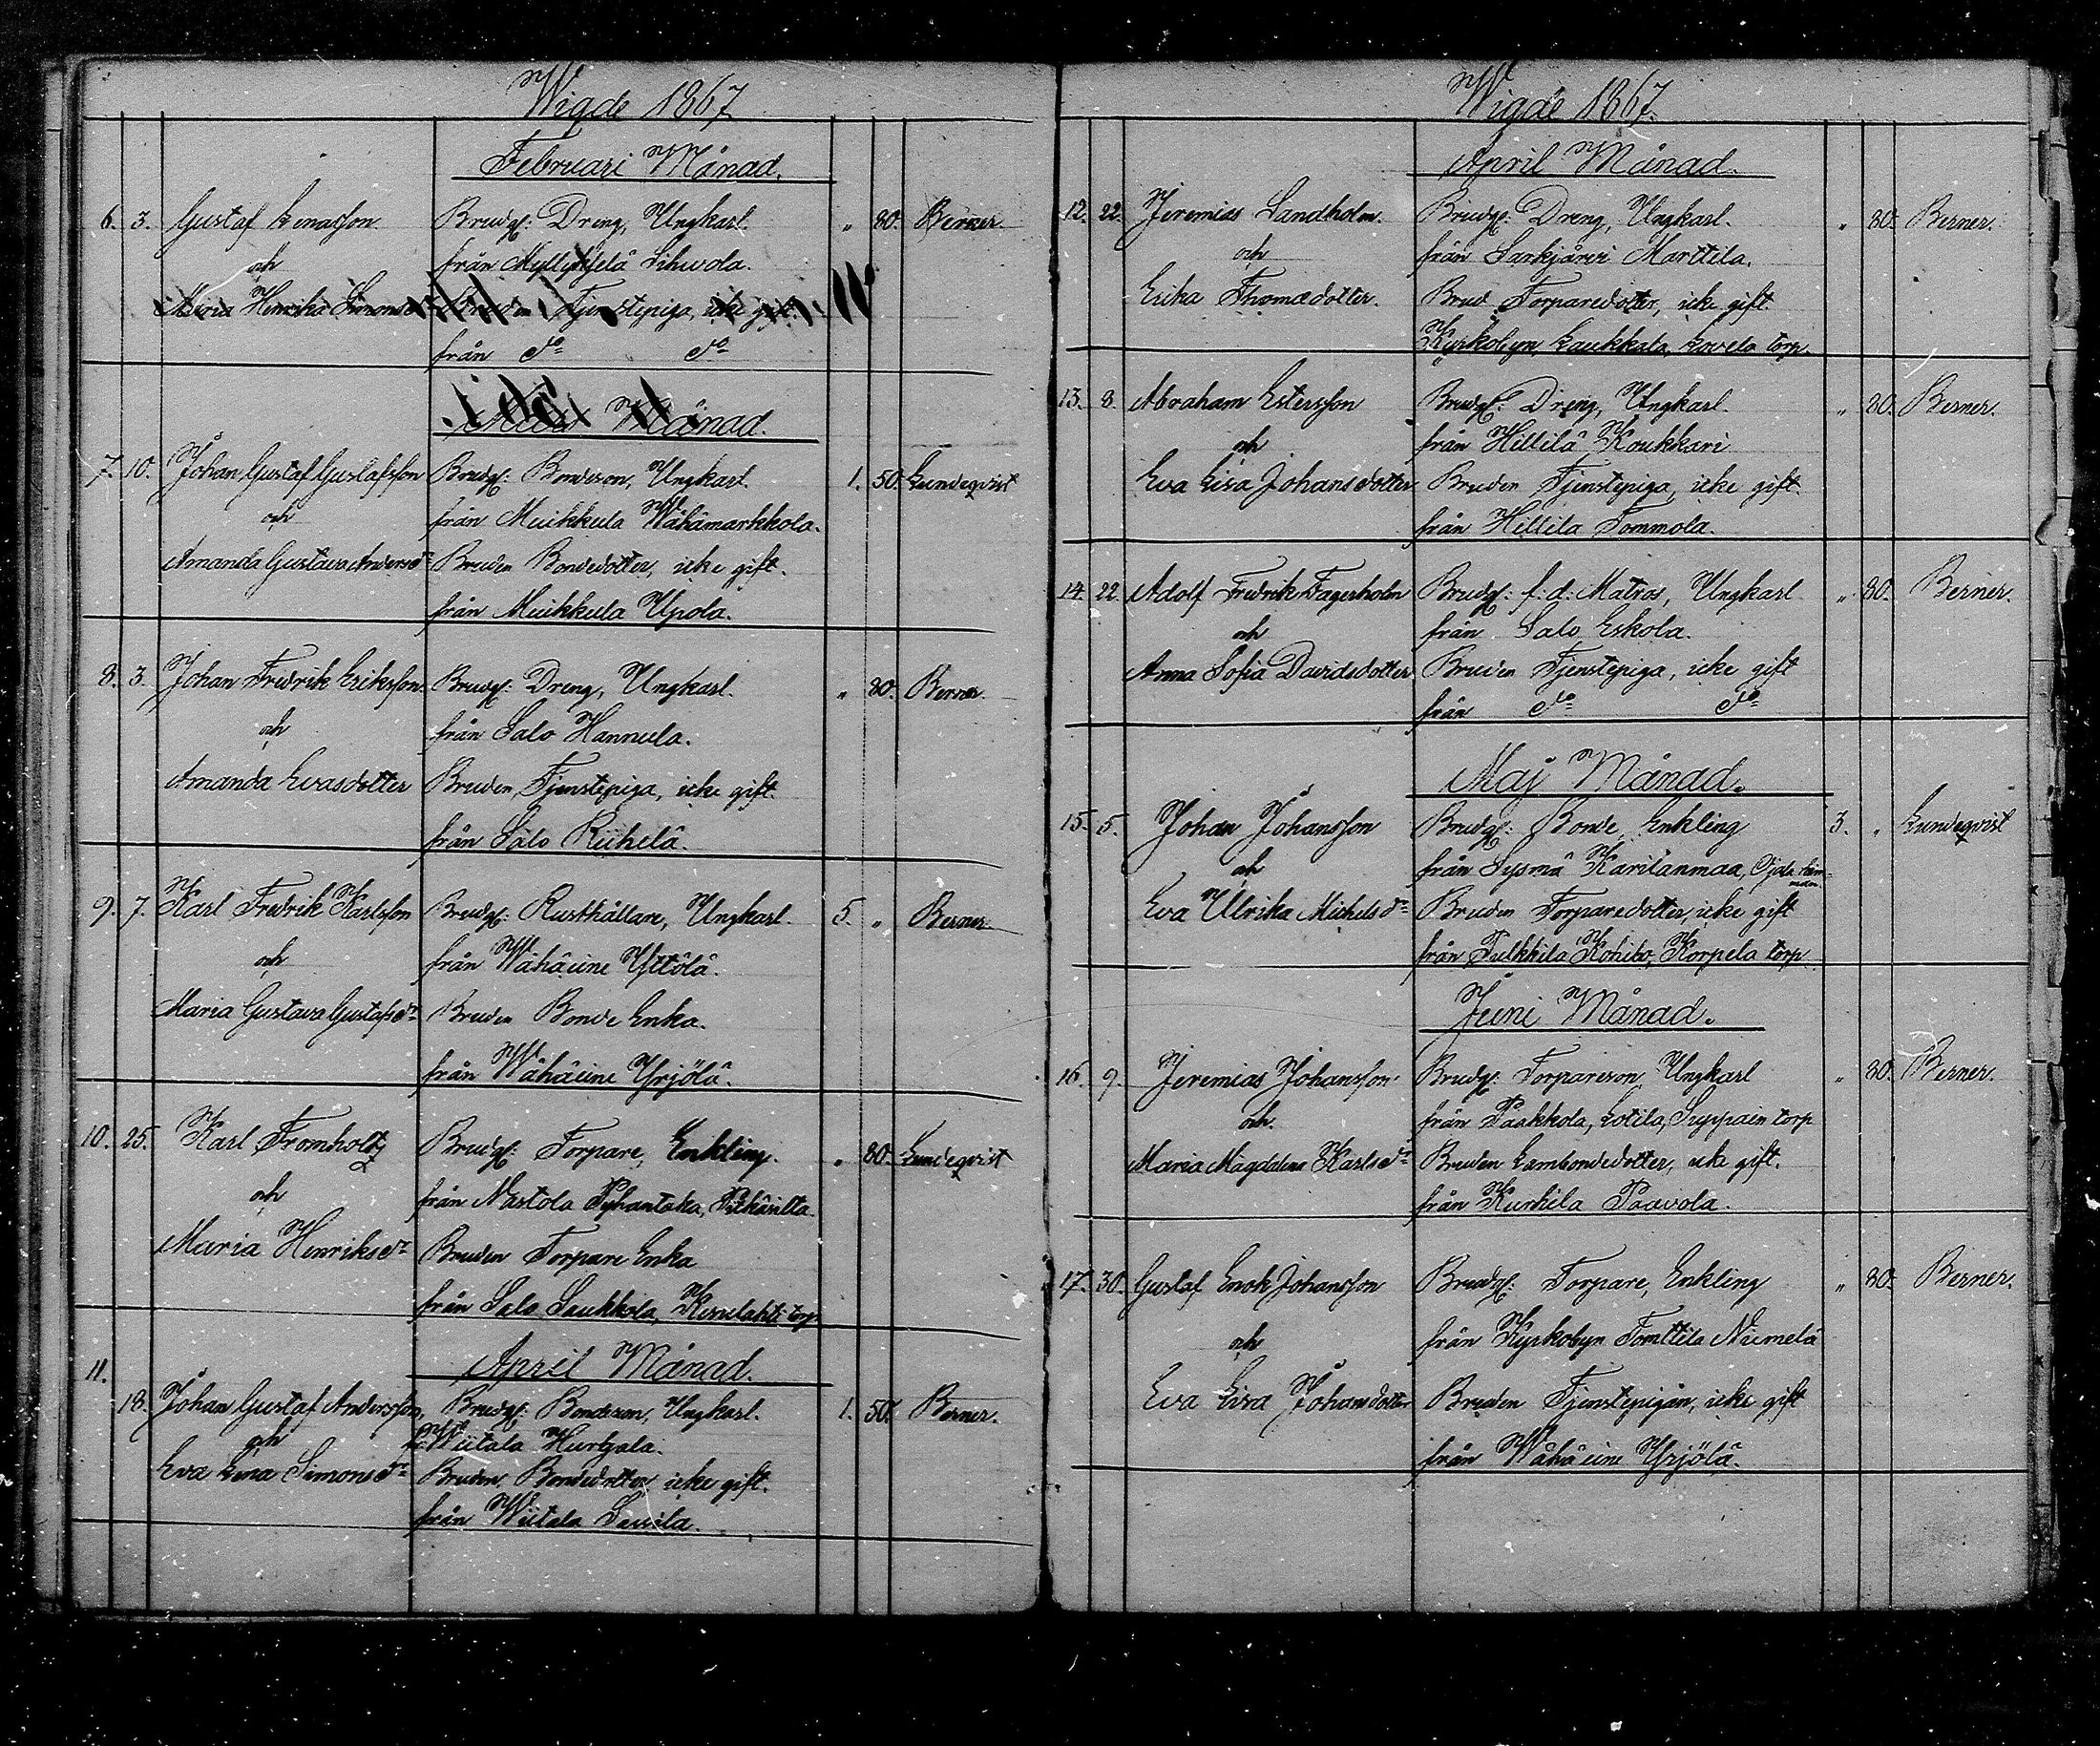 Wigde 1867
Februari Månad.
6. 3. Gustaf Lenasson. Brudg: Dreng, Ungkarl. " 80. Berner.
och från Myllykselä Sihvola.
Maria Henrika Simonsdr Bruden Tjenstepiga, icke gift.
från do do
Månad.
7. 10. Johan Gustaf Gustafsson Brudg: Bondeson, Ungkarl. 1. 50. Lundeqvist
och från Muikkula Wähämarkkola.
Amanda Gustava Andersdr Bruden Bondedotter, icke gift.
från Muikkula Upola.
8. 3. Johan Fredrik Eriksson Brudg: Dreng, Ungkarl. " 80. Berner.
och från Salo Hannula.
Amanda Evasdotter Bruden, Tjenstepiga, icke gift.
från Salo Riihelä.
9. 7. Karl Fredrik Karlsson Brudg: Rusthållare, Ungkarl. 5. " Berner.
och från Wähäuine Yttölä.
Maria Gustava Gustafsdr Bruden Bonde Enka.
från Wähäuine Yrjölä.
10. 25. Karl Fromholtz Brudg: Torpare, Enkling. " 80. Lundeqvist
och från Nastola Pyhäntaka, Pitkäsilta.
Maria Henriksdr Bruden Torpare Enka
från Salo Laukkala, torp
April Månad.
11.
18. Johan Gustaf Andersson, Brudg: Bondeson, Ungkarl. 1. 50. Berner.
och fr: Wiitala Hurtjala.
Eva Lena Simonsdr Bruden, Bondedotter, icke gift.
från Wiitala Sassila.
Wigde 1867.
April Månad.
12. 22. Jeremias Sandholm. Brudg: Dreng, Ungkarl. " 80. Berner.
och från Sarkjärvi Marttila.
Erika Thomædotter. Brud Torparedotter, icke gift.
Kyrkobyn, Laukkala, Lovela torp.
13. 8. Abraham Estersson Brudg: Dreng, Ungkarl. " 80. Berner.
och från Hillilä Koukkari
Eva Lisa Johansdotter Bruden Tjenstepiga, icke gift.
från Hillila Tommola.
14. 22. Adolf Fredrik Fagerholm Brudg: f: d: Matros, Ungkarl " 80. Berner.
och från Salo Eskola.
Anna Sofia Davidsdotter Bruden Tjenstepiga, icke gift
från do do
Maj Månad.
15. 5. Johan Johansson Brudg: Bonde, Enkling 3. " Lundeqvist
och från Sysmä Karilanmaa, Ojala hemman
Eva Ulrika Michelsdr Bruden Torparedotter, icke gift
från Pulkkila Kohibo, Korpela torp.
Juni Månad.
16. 9. Jeremias Johansson. Brudg: Torpareson, Ungkarl " 80. Berner.
och. från Paakkola, Lotila, Suppain torp
Maria Magdalena Karlsdr Bruden Lambondedotter, icke gift.
från Kurhila Paavola.
17. 30. Gustaf Enok Johansson Brudg: Torpare, Enkling " 80. Berner.
och från Kyrkobyn Tomttila Niemelä
Eva Lisa Johansdotter Bruden Tjenstepigan, icke gift
från Wähäuine Yrjölä.